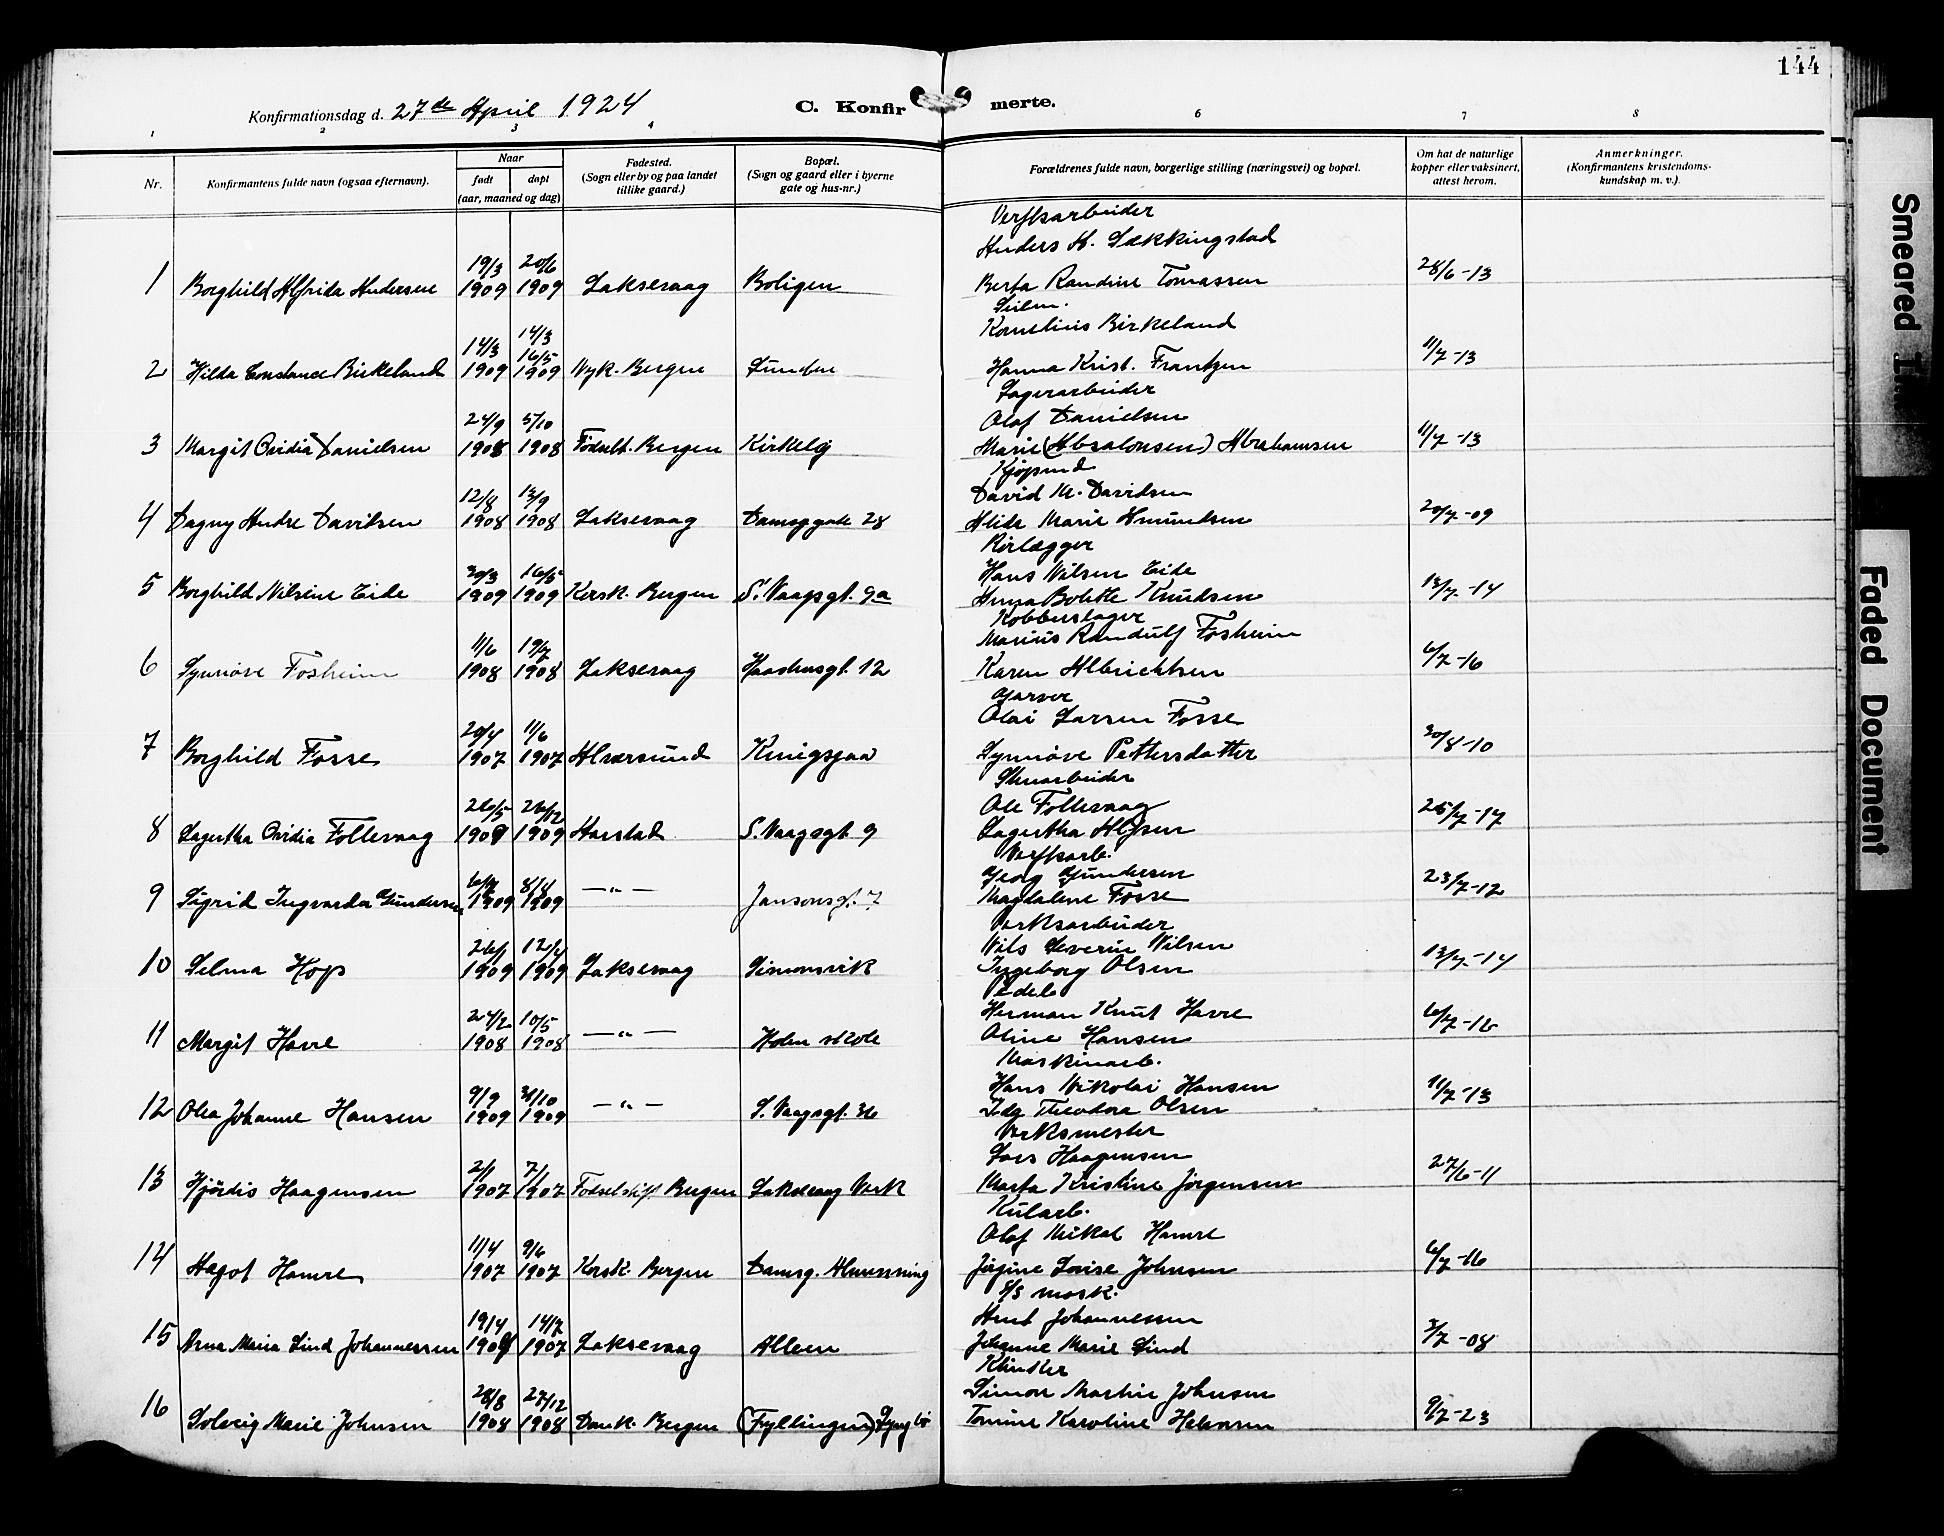 144
Konfirmationsdag d. 27de April 1924
C. Konfirmerte.
1 2 3 4 6 7 8
Nr.
Konfirmantens fulde navn (ogsaa efternavn).
Naar
født døpt
(aar, maaned og dag)
Fødested.
(Sogn eller by og paa landet
tillike gaard.)
Bopæl.
(Sogn og gaard eller i byerne
gate og hus-nr.)
Forældrenes fulde navn, borgerlige stilling (næringsvei) og bopæl.
Om hat de naturlige
kopper eller vaksinert,
attest herom.
Anmerkninger.
(Konfirmantens kristendoms-
kundskap m. v.).
Verftsarbeider
Anders H. Lækkingstad
19/3 20/6
1 Borghild Alfrida Andersen 1909 1909 Laksevaag Boligen Berta Randine Tomassen 28/6-13
Kornelius Birkeland
14/3 14/3
16/5
2 Hilda Constance Birkeland 1909 1909 Nyk. Bergen Lunden Hanna Krist. Frantzen 11/7-13
Lagerarbeider
Olaf Danielsen
24/9 5/10
3 Margit Ovidia Danielsen 1908 1908 Fødselst. Bergen Kirkelg Marie (Absalonsen) Abrahamsen 11/7-13
Kjøpmd
David M. Davidsen
12/8 13/9
4 Dagny Andre Davidsen 1908 1908 Laksevaag Damsggate 28 Alida Marie Amundsen 20/7-09
Rørlægger
Hans Nilsen Eide
30/3 16/5
5 Borghild Nilsine Eide 1909 1909 Korsk. Bergen S. Vaagsgt. 9a Anna Bolette Knudsen 13/7-14
Kobberslager
Marius Randulf Fosheim
11/6 19/7
6 Synnöve Fosheim 1908 1908 Laksevaag 12 Karen Albrichtsen 6/7-16
Garver
Olai Larsen Fosse
20/4 11/6
7 Borghild Fosse 1907 1907 Alversund Synnöve Pettersdatter 30/8-10
Skoarbeider
Ole Follevaag
8 Lagertha Ovidia Follevaag 1909 1909 Harstad S. Vaagsgt 9 Lagertha 25/7-17
Verftsarb.
Georg Gundersen
8/4
9 Sigrid Ingvarda Gundersen 1909 1909 —"— Jansonsgt. 7 Magdalene Fosse 23/7-12
Verksarbeider
Nils Severin Nilsen
26/1 12/4
10 Selma Hop 1909 1909 Laksevaag Simonsvik Ingeborg Olsen 13/7-14
Herman Knut Havre
24/2 10/5
11 Margit Havre 1908 1908 —"— Holen skole Oline Hansen 6/7-16
Maskinarb.
Hans Nikolai Hansen
9/9 31/10
12 Olea Johanne Hansen 1909 1909 —"— S. Vaagsgt. Ida Theodora Olsen 11/7-13
Verksmester
Lars Haagensen
2/1 7/1
13 Hjördis Haagensen 1907 1907 Fødselstift. Bergen Laksevaag Verk Marta Kristine Jørgensen 27/6-11
Kularb.
Olaf Mikal Hamre
11/4 9/6
14 Hamre 1907 1907 Korsk. Bergen Damsg. Almenning Jørgine Lovise Johnsen 6/7-16
mask.
Arnt Johannessen
19/4 14/7
15 Arna Maria Lind Johannessen 1907 Laksevaag Alleen Johanne Marie Lind 3/7-08
Simon Martin Johnsen
28/8 27/12
16 Solveig Marie Johnsen 1908 1908 Domk. Bergen (Fyllingen) Lyngbø Tomine Karoline Halvorsen 9/7-23
Smeared
Faded Document